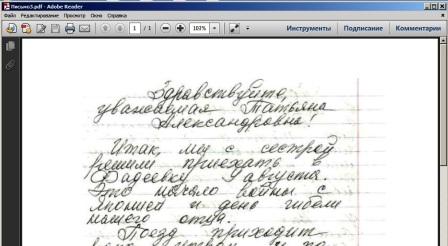 Письмо3.pdf - Adobe Reader
Файл Редактирование Просмотр Окно Справка
1 / 1 103% Инструменты Подписание Комментарии
Здравствуйте,
уважаемая Татьяна
Александровна!
Итак, мы с сестрой
решили приехать в
Фадеевку 9 августа.
Это начало войны с
Японией и день гибели
нашего отца.
Поезд приходит